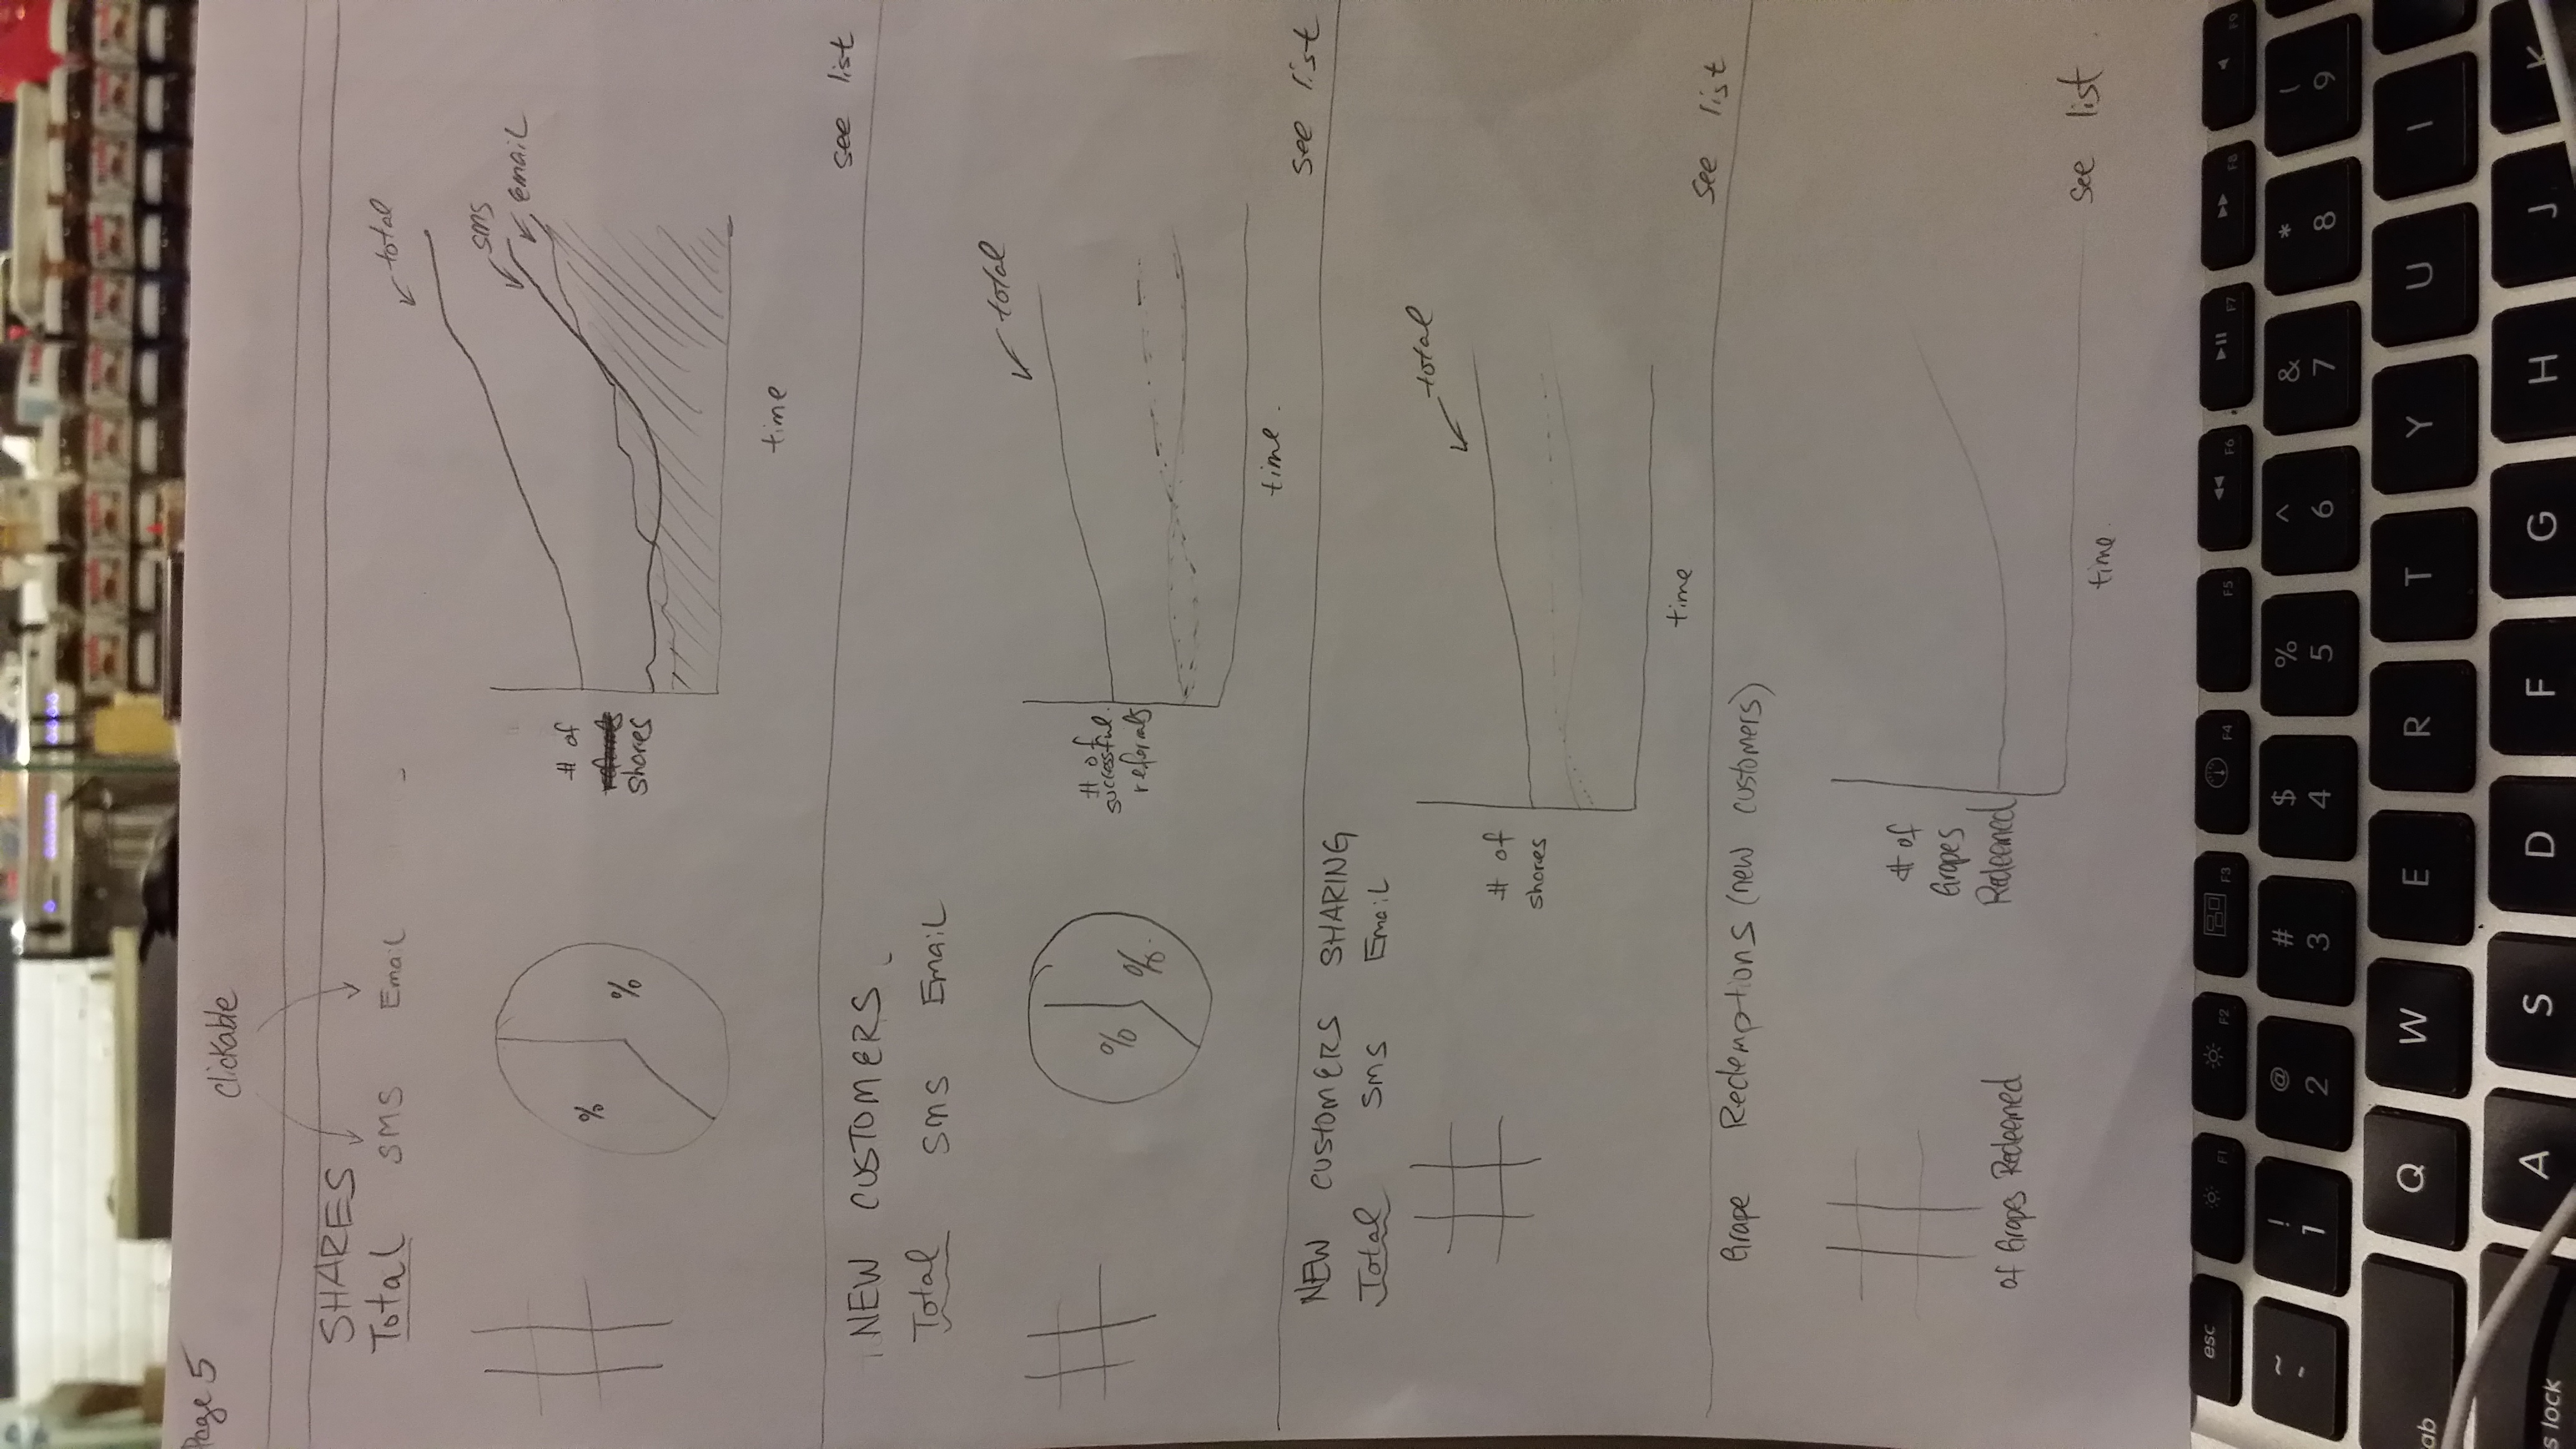 Page 5
clickable
SHARES
Total SMS Email
total
sms
email
%
%
# of
referrals
shares
time
see list
NEW CUSTOMERS
Total SMS Email
total
%
%
# of
successful
referrals
time.
see list
NEW CUSTOMERS SHARING
Total SMS Email
total
# of
shares
time
see list
Grape Redemptions (new customers)
#
of Grapes Redeemed
# of
Grapes
Redeemed
time.
see list
esc F1 F2 F3 F4 F5 F6 F7 F8 F9
~ ! @ # $ % ^ & * (
1 2 3 4 5 6 7 8 9
Q W E R T Y U I
A S D F G H J K
s lock